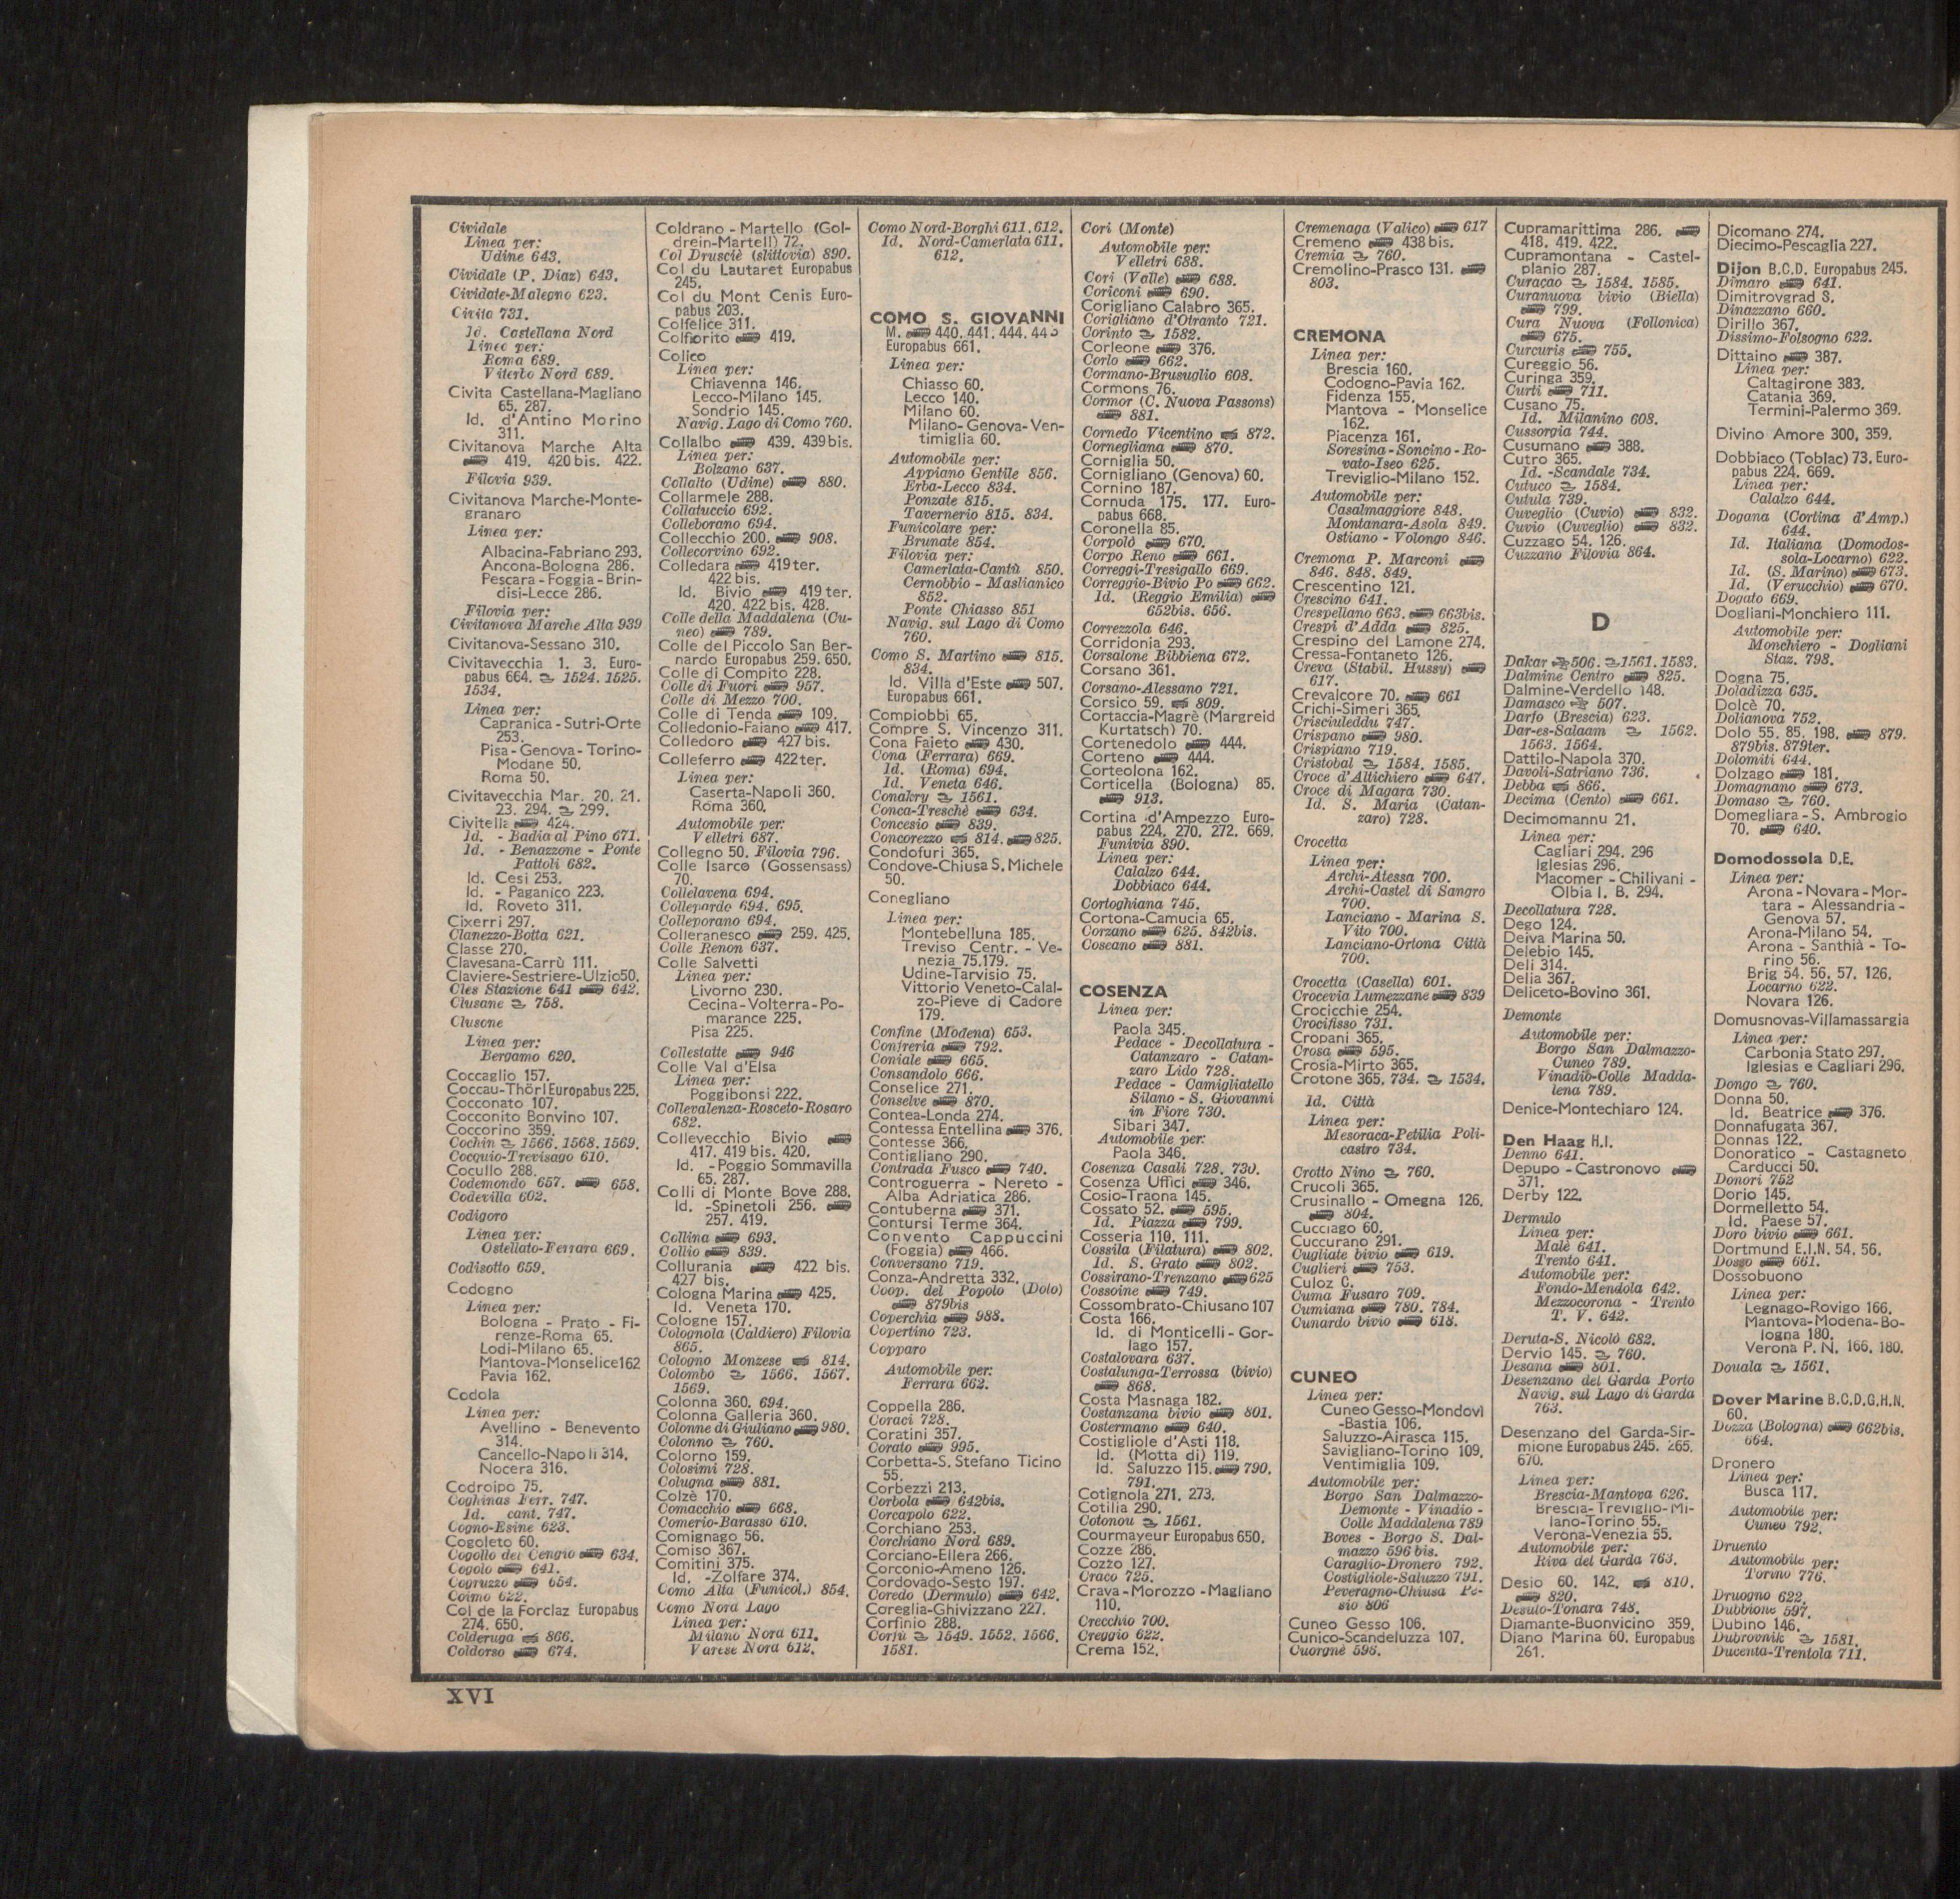 Cividale
Linea per:
Udine 643.
Cividale (P. Diaz) 643.
Cividate-Malegno 623.
Civita 731.
Id. Castellana Nord
Linee per:
Roma 689.
Viterbo Nord 689.
Civita Castellana-Magliano
65. 287.
Id. d'Antino Morino
311.
Civitanova Marche Alta
419. 420 bis. 422.
Filovia 939.
Civitanova Marche-Monte-
granaro
Linea per:
Albacina-Fabriano 293.
Ancona-Bologna 286.
Pescara - Foggia - Brin-
disi-Lecce 286.
Filovia per:
Civitanova Marche Alta 939
Civitanova-Sessano 310.
Civitavecchia 1. 3. Euro-
pabus 664. 1524. 1525.
1534.
Linea per:
Capranica - Sutri-Orte
253.
Pisa - Genova - Torino-
Modane 50.
Roma 50.
Civitavecchia Mar. 20. 21.
23. 294. 299.
Civitella 424.
Id. - Badia al Pino 671.
Id. - Benazzone - Ponte
Pattoli 682.
Id. Cesi 253.
Id. - Paganico 223.
Id. Roveto 311.
Cixerri 297.
Clanezzo-Botta 621.
Classe 270.
Clavesana-Carrù 111.
Claviere-Sestriere-Ulzio50.
Cles Stazione 641 642.
Clusane 758.
Clusone
Linea per:
Bergamo 620.
Coccaglio 157.
Coccau-Thörl Europabus 225.
Cocconato 107.
Cocconito Bonvino 107.
Coccorino 359.
Cochin 1566. 1568. 1569.
Cocquio-Trevisago 610.
Cocullo 288.
Codemondo 657. 658.
Codevilla 602.
Codigoro
Linea per:
Ostellato-Ferrara 669.
Codisotto 659.
Codogno
Linea per:
Bologna - Prato - Fi-
renze-Roma 65.
Lodi-Milano 65.
Mantova-Monselice162
Pavia 162.
Codola
Linea per:
Avellino - Benevento
314.
Cancello-Napoli 314.
Nocera 316.
Codroipo 75.
Coghinas Ferr. 747.
Id. cant. 747.
Cogno-Esine 623.
Cogoleto 60.
Cogollo del Cengio 634.
Cogolo 641.
Cogruzzo 654.
Coimo 622.
Col de la Forclaz Europabus
274. 650.
Colderuga 866.
Coldorso 674.
Coldrano - Martello (Gol-
drein-Martell) 72.
Col Drusciè (slittovia) 890.
Col du Lautaret Europabus
245.
Col du Mont Cenis Euro-
pabus 203.
Colfelice 311.
Colfiorito 419.
Colico
Linea per:
Chiavenna 146.
Lecco-Milano 145.
Sondrio 145.
Navig. Lago di Como 760.
Collalbo 439. 439 bis.
Linea per:
Bolzano 637.
Collalto (Udine) 880.
Collarmele 288.
Collatuccio 692.
Colleborano 694.
Collecchio 200. 908.
Collecorvino 692.
Colledara 419 ter.
422 bis.
Id. Bivio 419 ter.
420. 422 bis. 428.
Colle della Maddalena (Cu-
neo) 789.
Colle del Piccolo San Ber-
nardo Europabus 259. 650.
Colle di Compito 228.
Colle di Fuori 957.
Colle di Mezzo 700.
Colle di Tenda 109.
Colledonio-Faiano 417.
Colledoro 427 bis.
Colleferro 422ter.
Linea per:
Caserta-Napoli 360.
Roma 360.
Automobile per:
Velletri 687.
Collegno 50. Filovia 796.
Colle Isarco (Gossensass)
70.
Collelavena 694.
Collepardo 694. 695.
Colleporano 694.
Colleranesco 259. 425.
Colle Renon 637.
Colle Salvetti
Linea per:
Livorno 230.
Cecina-Volterra-Po-
marance 225.
Pisa 225.
Collestatte 946
Colle Val d'Elsa
Linea per:
Poggibonsi 222.
Collevalenza-Rosceto-Rosaro
682.
Collevecchio Bivio
417. 419 bis. 420.
Id. -Poggio Sommavilla
65. 287.
Colli di Monte Bove 288.
Id. -Spinetoli 256.
257. 419.
Collina 693.
Collio 839.
Collurania 422 bis.
427 bis.
Cologna Marina 425.
Id. Veneta 170.
Cologne 157.
Colognola (Caldiero) Filovia
865.
Cologno Monzese 814.
Colombo 1566. 1567.
1569.
Colonna 360. 694.
Colonna Galleria 360.
Colonne di Giuliano 980.
Colonno 760.
Colorno 159.
Colosimi 728.
Colugna 881.
Colzè 170.
Comacchio 668.
Comerio-Barasso 610.
Comignago 56.
Comiso 367.
Comitini 375.
Id. -Zolfare 374.
Como Alta (Funicol.) 854.
Como Nord Lago
Linea per:
Milano Nord 611.
Varese Nord 612.
Como Nord-Borghi 611. 612.
Id. Nord-Camerlata 611.
612.
COMO S. GIOVANNI
M. 440. 441. 444. 445
Europabus 661.
Linea per:
Chiasso 60.
Lecco 140.
Milano 60.
Milano - Genova - Ven-
timiglia 60.
Automobile per:
Appiano Gentile 856.
Erba-Lecco 834.
Ponzate 815.
Tavernerio 815. 834.
Funicolare per:
Brunate 854.
Filovia per:
Camerlata-Cantù 850.
Cernobbio - Maslianico
852.
Ponte Chiasso 851
Navig. sul Lago di Como
760.
Como S. Martino 815.
834.
Id. Villa d'Este 507.
Europabus 661.
Compiobbi 65.
Compre S. Vincenzo 311.
Cona Faieto 430.
Cona (Ferrara) 669.
Id. (Roma) 694.
Id. Veneta 646.
Conakry 1561.
Conca-Treschè 634.
Concesio 839.
Concorezzo 814. 825.
Condofuri 365.
Condove-Chiusa S. Michele
50.
Conegliano
Linea per:
Montebelluna 185.
Treviso Centr. - Ve-
nezia 75.179.
Udine-Tarvisio 75.
Vittorio Veneto-Calal-
zo-Pieve di Cadore
179.
Confine (Modena) 653.
Confreria 792.
Coniale 665.
Consandolo 666.
Conselice 271.
Conselve 870.
Contea-Londa 274.
Contessa Entellina 376.
Contesse 366.
Contigliano 290.
Contrada Fusco 740.
Controguerra - Nereto -
Alba Adriatica 286.
Contuberna 371.
Contursi Terme 364.
Convento Cappuccini
(Foggia) 466.
Conversano 719.
Conza-Andretta 332.
Coop. del Popolo (Dolo)
879bis
Coperchia 988.
Copertino 723.
Copparo
Automobile per:
Ferrara 662.
Coppella 286.
Coraci 728.
Coratini 357.
Corato 995.
Corbetta-S. Stefano Ticino
55.
Corbezzi 213.
Corbola 642bis.
Corcapolo 622.
Corchiano 253.
Corchiano Nord 689.
Corciano-Ellera 266.
Corconio-Ameno 126.
Cordovado-Sesto 197.
Coredo (Dermulo) 642.
Coreglia-Ghivizzano 227.
Corfinio 288.
Corfù 1549. 1552. 1566.
1581.
Cori (Monte)
Automobile per:
Velletri 688.
Cori (Valle) 688.
Coriconi 690.
Corigliano Calabro 365.
Corigliano d'Otranto 721.
Corinto 1582.
Corleone 376.
Corlo 662.
Cormano-Brusuglio 608.
Cormons 76.
Cormor (C. Nuova Passons)
881.
Cornedo Vicentino 872.
Cornegliana 870.
Corniglia 50.
Cornigliano (Genova) 60.
Cornino 187.
Cornuda 175. 177. Euro-
pabus 668.
Coronella 85.
Corpolò 670.
Corpo Reno 661.
Correggi-Tresigallo 669.
Correggio-Bivio Po 662.
Id. (Reggio Emilia)
652bis. 656.
Correzzola 646.
Corridonia 293.
Corsalone Bibbiena 672.
Corsano 361.
Corsano-Alessano 721.
Corsico 59. 809.
Cortaccia-Magrè (Margreid
Kurtatsch) 70.
Cortenedolo 444.
Corteno 444.
Corteolona 162.
Corticella (Bologna) 85.
913.
Cortina d'Ampezzo Euro-
pabus 224. 270. 272. 669.
Funivia 890.
Linea per:
Calalzo 644.
Dobbiaco 644.
Cortoghiana 745.
Cortona-Camucia 65.
Corzano 625. 842bis.
Coseano 881.
COSENZA
Linea per:
Paola 345.
Pedace - Decollatura -
Catanzaro - Catan-
zaro Lido 728.
Pedace - Camigliatello
Silano - S. Giovanni
in Fiore 730.
Sibari 347.
Automobile per:
Paola 346.
Cosenza Casali 728. 730.
Cosenza Uffici 346.
Cosio-Traona 145.
Cossato 52. 595.
Id. Piazza 799.
Cosseria 110. 111.
Cossila (Filatura) 802.
Id. S. Grato 802.
Cossirano-Trenzano 625
Cossoine 749.
Cossombrato-Chiusano 107
Costa 166.
Id. di Monticelli - Gor-
lago 157.
Costalovara 637.
Costalunga-Terrossa (bivio)
868.
Costa Masnaga 182.
Costanzana bivio 801.
Costermano 640.
Costigliole d'Asti 118.
Id. (Motta di) 119.
Id. Saluzzo 115. 790.
791.
Cotignola 271. 273.
Cotilia 290.
Cotonou 1561.
Courmayeur Europabus 650.
Cozze 286.
Cozzo 127.
Craco 725.
Crava - Morozzo - Magliano
110.
Crecchio 700.
Creggio 622.
Crema 152.
Cremenaga (Valico) 617
Cremeno 438 bis.
Cremia 760.
Cremolino-Prasco 131.
803.
CREMONA
Linea per:
Brescia 160.
Codogno-Pavia 162.
Fidenza 155.
Mantova - Monselice
162.
Piacenza 161.
Soresina - Soncino - Ro-
vato-Iseo 625.
Treviglio-Milano 152.
Automobile per:
Casalmaggiore 848.
Montanara-Asola 849.
Ostiano - Volongo 846.
Cremona P. Marconi
846. 848. 849.
Crescentino 121.
Crescino 641.
Crespellano 663. 663bis.
Crespi d'Adda 825.
Crespino del Lamone 274.
Cressa-Fontaneto 126.
Creva (Stabil. Hussy)
617.
Crevalcore 70. 661
Crichi-Simeri 365.
Crisciuleddu 747.
Crispano 980.
Crispiano 719.
Cristobal 1584. 1585.
Croce d'Altichiero 647.
Croce di Magara 730.
Id. S. Maria (Catan-
zaro) 728.
Crocetta
Linea per:
Archi-Atessa 700.
Archi-Castel di Sangro
700.
Lanciano - Marina S.
Vito 700.
Lanciano-Ortona Città
700.
Crocetta (Casella) 601.
Crocevia Lumezzane 839
Crocicchie 254.
Crocifisso 731.
Cropani 365.
Crosa 595.
Crosia-Mirto 365.
Crotone 365. 734. 1534.
Id. Città
Linea per:
Mesoraca-Petilia Poli-
castro 734.
Crotto Nino 760.
Crucoli 365.
Crusinallo - Omegna 126.
804.
Cucciago 60.
Cuccurano 291.
Cugliate bivio 619.
Cuglieri 753.
Culoz C.
Cuma Fusaro 709.
Cumiana 780. 784.
Cunardo bivio 618.
CUNEO
Linea per:
Cuneo Gesso-Mondovì
-Bastia 106.
Saluzzo-Airasca 115.
Savigliano-Torino 109.
Ventimiglia 109.
Automobile per:
Borgo San Dalmazzo-
Demonte - Vinadio -
Colle Maddalena 789
Boves - Borgo S. Dal-
mazzo 596 bis.
Caraglio-Dronero 792.
Costigliole-Saluzzo 791.
Peveragno-Chiusa Pe-
sio 806
Cuneo Gesso 106.
Cunico-Scandeluzza 107.
Cuorgnè 595.
Cupramarittima 286.
418. 419. 422.
Cupramontana - Castel-
planio 287.
Curaçao 1584. 1585.
Curanuova bivio (Biella)
799.
Cura Nuova (Follonica)
675.
Curcuris 755.
Cureggio 56.
Curinga 359.
Curti 711.
Cusano 75.
Id. Milanino 608.
Cussorgia 744.
Cusumano 388.
Cutro 365.
Id. -Scandale 734.
Cutuco 1584.
Cutula 739.
Cuveglio (Cuvio) 832.
Cuvio (Cuveglio) 832.
Cuzzago 54. 126.
Cuzzano Filovia 864.
D
Dakar 506. 1561. 1583.
Dalmine Centro 825.
Dalmine-Verdello 148.
Damasco 507.
Darfo (Brescia) 623.
Dar-es-Salaam 1562.
1563. 1564.
Dattilo-Napola 370.
Davoli-Satriano 736.
Debba 866.
Decima (Cento) 661.
Decimomannu 21.
Linea per:
Cagliari 294. 296
Iglesias 296.
Macomer - Chilivani -
Olbia I. B. 294.
Decollatura 728.
Dego 124.
Deiva Marina 50.
Delebio 145.
Deli 314.
Delia 367.
Deliceto-Bovino 361.
Demonte
Automobile per:
Borgo San Dalmazzo-
Cuneo 789.
Vinadio-Colle Madda-
lena 789.
Denice-Montechiaro 124.
Den Haag H.I.
Denno 641.
Depupo - Castronovo
371.
Derby 122.
Dermulo
Linea per:
Malè 641.
Trento 641.
Automobile per:
Fondo-Mendola 642.
Mezzocorona - Trento
T. V. 642.
Deruta-S. Nicolò 682.
Dervio 145. 760.
Desana 801.
Desenzano del Garda Porto
Navig. sul Lago di Garda
763.
Desenzano del Garda-Sir-
mione Europabus 245. 265.
670.
Linea per:
Brescia-Mantova 626.
Brescia-Treviglio-Mi-
lano-Torino 55.
Verona-Venezia 55.
Automobile per:
Riva del Garda 763.
Desio 60. 142. 810.
820.
Desulo-Tonara 748.
Diamante-Buonvicino 359.
Diano Marina 60. Europabus
261.
Dicomano 274.
Diecimo-Pescaglia 227.
Dijon B.C.D. Europabus 245.
Dimaro 641.
Dimitrovgrad S.
Dinazzano 660.
Dirillo 367.
Dissimo-Folsogno 622.
Dittaino 387.
Linea per:
Caltagirone 383.
Catania 369.
Termini-Palermo 369.
Divino Amore 300. 359.
Dobbiaco (Toblac) 73. Euro-
pabus 224. 669.
Linea per:
Calalzo 644.
Dogana (Cortina d'Amp.)
644.
Id. Italiana (Domodos-
sola-Locarno) 622.
Id. (S. Marino) 673.
Id. (Verucchio) 670.
Dogato 669.
Dogliani-Monchiero 111.
Automobile per:
Monchiero - Dogliani
Staz. 798.
Dogna 75.
Doladizza 635.
Dolcè 70.
Dolianova 752.
Dolo 55. 85. 198. 879.
879bis. 879ter.
Dolomiti 644.
Dolzago 181.
Domagnano 673.
Domaso 760.
Domegliara - S. Ambrogio
70. 640.
Domodossola D.E.
Linea per:
Arona - Novara - Mor-
tara - Alessandria -
Genova 57.
Arona-Milano 54.
Arona - Santhià - To-
rino 56.
Brig 54. 56. 57. 126.
Locarno 622.
Novara 126.
Domusnovas-Villamassargia
Linea per:
Carbonia Stato 297.
Iglesias e Cagliari 296.
Dongo 760.
Donna 50.
Id. Beatrice 376.
Donnafugata 367.
Donnas 122.
Donoratico - Castagneto
Carducci 50.
Donori 752
Dorio 145.
Dormelletto 54.
Id. Paese 57.
Doro bivio 661.
Dortmund E.I.N. 54. 56.
Dosso 661.
Dossobuono
Linea per:
Legnago-Rovigo 166.
Mantova-Modena-Bo-
logna 180.
Verona P. N. 166. 180.
Douala 1561.
Dover Marine B.C.D.G.H.N.
60.
Dozza (Bologna) 662bis.
664.
Dronero
Linea per:
Busca 117.
Automobile per:
Cuneo 792.
Druento
Automobile per:
Torino 776.
Druogno 622.
Dubbione 597.
Dubino 146.
Dubrovnik 1581.
Ducenta-Trentola 711.
XVI